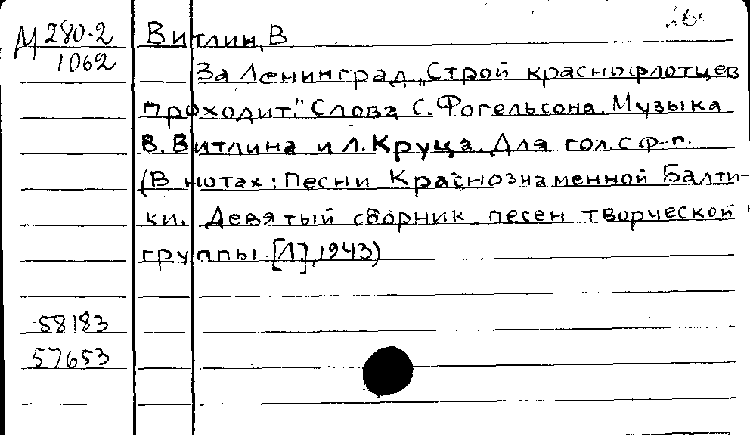 М 280-2
1062
Витлин, В
За Ленинград „Строй краснофлотцев
проходит." Слова С. Фогельсона. Музыка
В. Витлина и Л. Круца. Для гол. с ф-п.
(В нотах: Песни Краснознаменной Балти-
ки. Девятый сборник песен творческой
группы [Л], 1943)
58183
57653